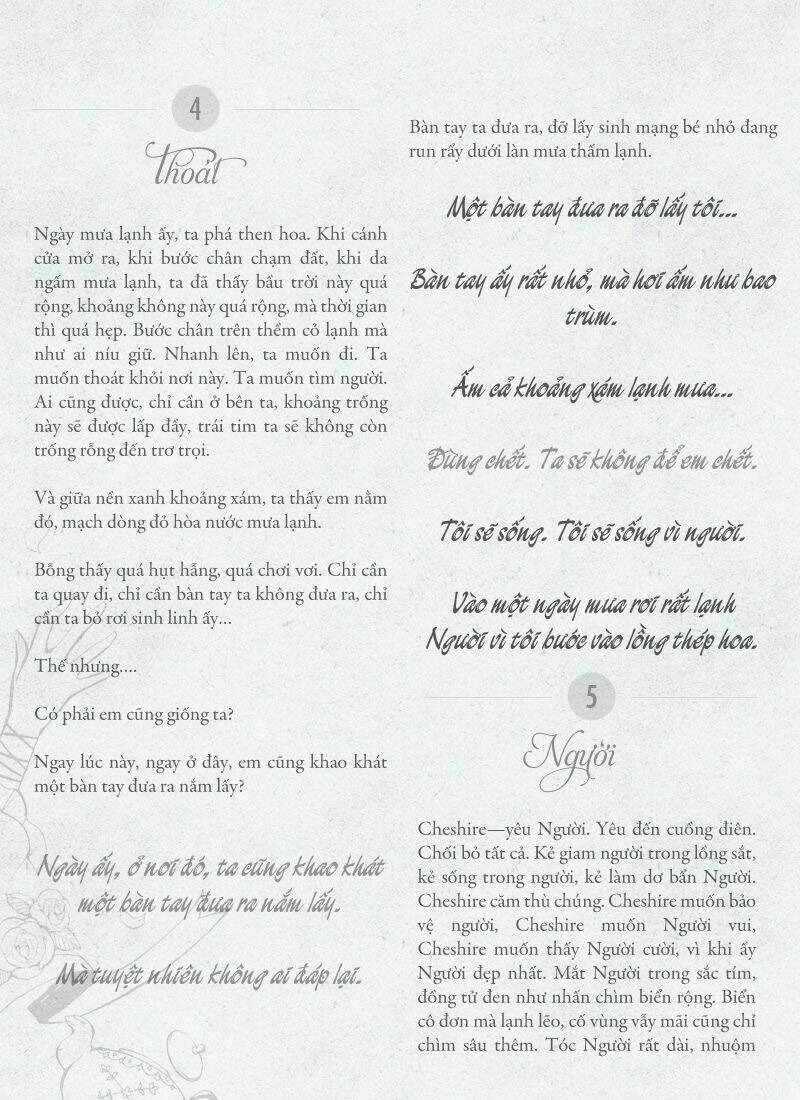 4
Thoát
Ngày mưa lạnh ấy, ta phá then hoa. Khi cánh
cửa mở ra, khi bước chân chạm đất, khi da
ngấm mưa lạnh, ta đã thấy bầu trời này quá
rộng, khoảng không này quá rộng, mà thời gian
thì quá hẹp. Bước chân trên thềm cỏ lạnh mà
như ai níu giữ. Nhanh lên, ta muốn đi. Ta
muốn thoát khỏi nơi này. Ta muốn tìm người.
Ai cũng được, chỉ cần ở bên ta, khoảng trống
này sẽ được lấp đầy, trái tim ta sẽ không còn
trống rỗng đến trơ trọi.
Và giữa nền xanh khoảng xám, ta thấy em nằm
đó, mạch dòng đỏ hòa nước mưa lạnh.
Bỗng thấy quá hụt hẫng, quá chơi vơi. Chỉ cần
ta quay đi, chỉ cần bàn tay ta không đưa ra, chỉ
cần ta bỏ rơi sinh linh ấy...
Thế nhưng....
Có phải em cũng giống ta?
Ngay lúc này, ngay ở đây, em cũng khao khát
một bàn tay đưa ra nắm lấy?
Ngày ấy, ở nơi đó, ta cũng khao khát
một bàn tay đưa ra nắm lấy.
Mà tuyệt nhiên không ai đáp lại.
Bàn tay ta đưa ra, đỡ lấy sinh mạng bé nhỏ đang
run rẩy dưới làn mưa thấm lạnh.
Một bàn tay đưa ra đỡ lấy tôi...
Bàn tay ấy rất nhỏ, mà hơi ấm như bao
trùm.
Ấm cả khoảng xám lạnh mưa...
Đừng chết. Ta sẽ không để em chết.
Tôi sẽ sống. Tôi sẽ sống vì người.
Vào một ngày mưa rơi rất lạnh
Người vì tôi bước vào lồng thép hoa.
5
Người
Cheshire—yêu Người. Yêu đến cuồng điên.
Chối bỏ tất cả. Kẻ giam người trong lồng sắt,
kẻ sống trong người, kẻ làm dơ bẩn Người.
Cheshire căm thù chúng. Cheshire muốn bảo
vệ người, Cheshire muốn Người vui,
Cheshire muốn thấy Người cười, vì khi ấy
Người đẹp nhất. Mắt Người trong sắc tím,
đồng tử đen như nhấn chìm biển rộng. Biển
cô đơn mà lạnh lẽo, cố vùng vẫy mãi cũng chỉ
chìm sâu thêm. Tóc Người rất dài, nhuộm